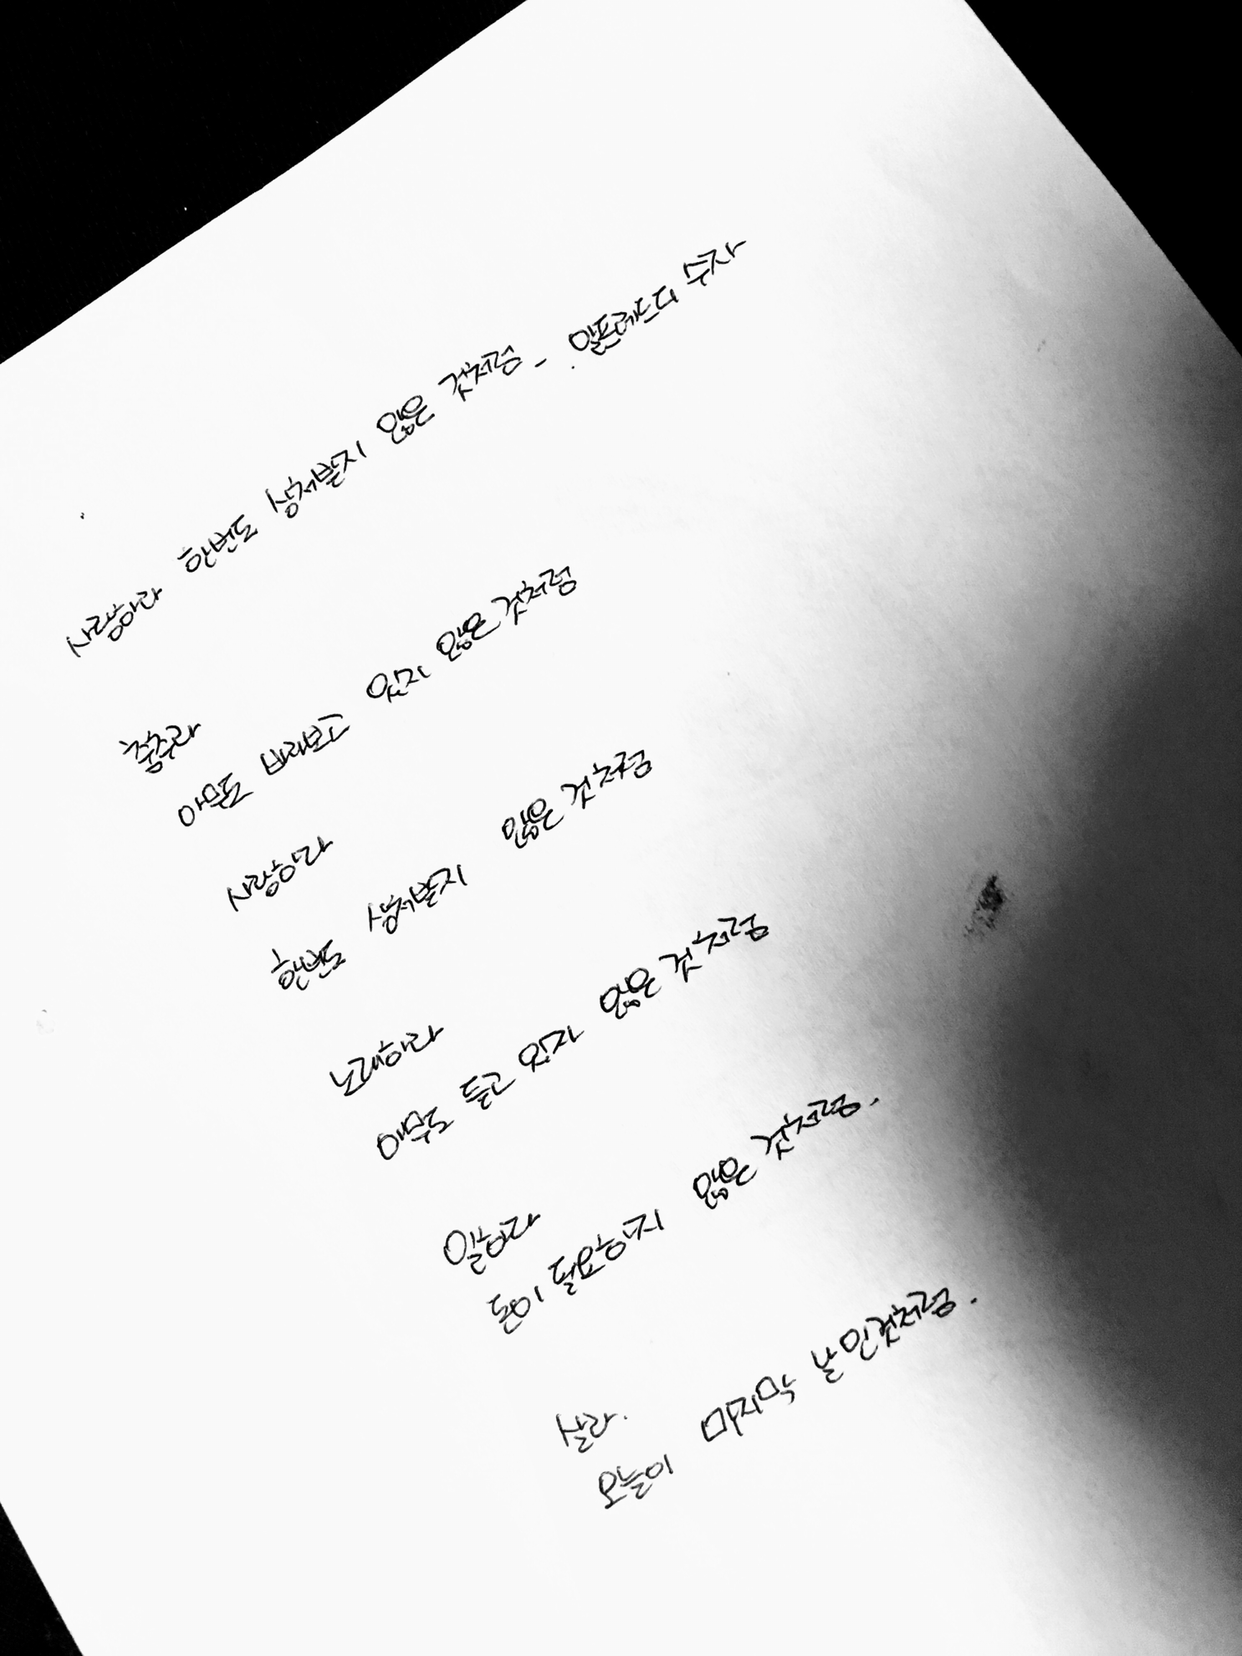 사랑하라 한번도 상처받지 않은 것처럼 - 알프레드디 수자
춤추라
아무도 바라보고 있지 않은 것처럼
사랑하라
한번도 상처받지 않은 것처럼
노래하라
아무도 듣고 있지 않은 것처럼
일하라
돈이 필요하지 않은 것처럼.
살라.
오늘이 마지막 날인것처럼.